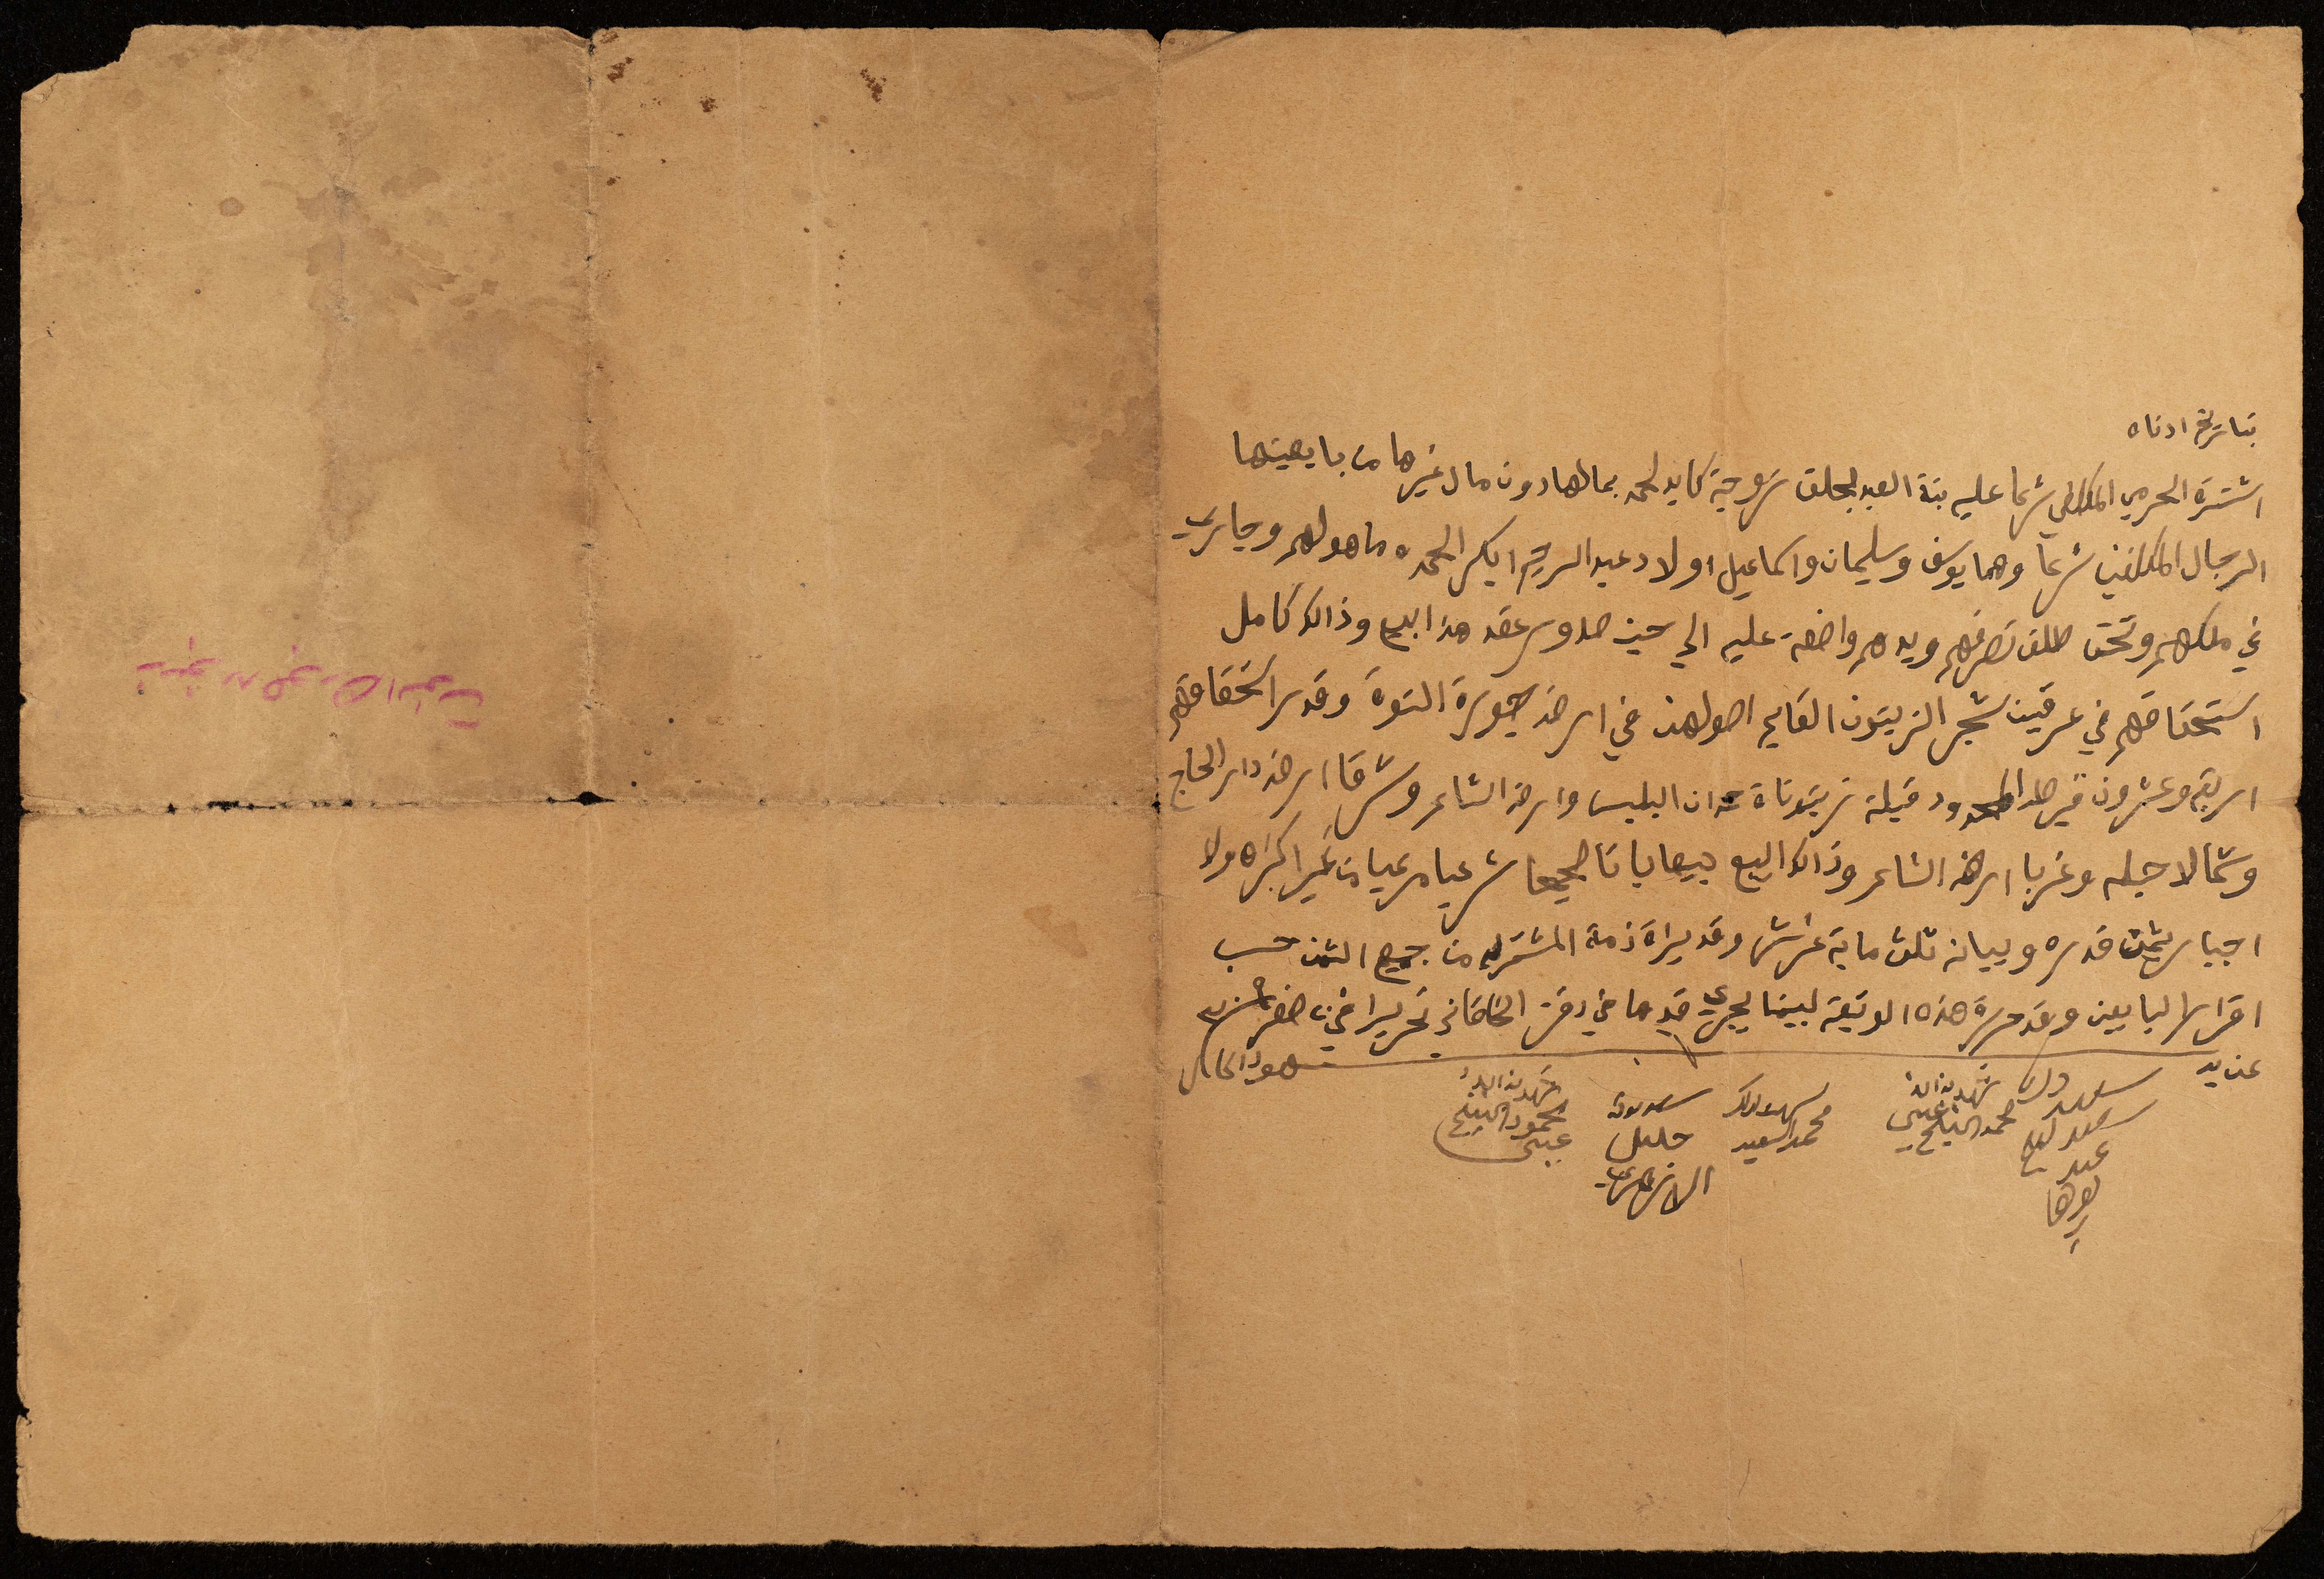 بتاريخ ادناه
اشترة الحرمي المكلفي شرعا عليه بنة العبد لجلق زوجة كايد لحمد بمالها دون مال غيرها من بايعينها
الرجال المكلفين شرعا وهما يوسف وسليمان واسماعيل اولاد عبد الرحيم ابكر المحمد ما هو لهم وجاري
في ملكهم وتحت طلق تصرفهم ويدهم واضعة عليه الي حين صدور عقد هذا البيع وذالك كامل
استحقاقهم في عرقين شجر الزيتون القايم اصولهن في ارض جورة التوة وقدر استحقاقهم
اربعة وعشرون قيراط المحدود قبلة زيتوناة حمدان البلبيس وارض الشاعر وشرقا ارض دار الحاج
وشمالا جبله وغربا ارض الشاعر وذالك البيع بيعا باتا صحيحا شرعيا مرعيا من غير اكراه ولا
اجبار بثمن قدره وبيانه ثلاث ماية غرش وقد براة ذمة المشتريه من جميع الثمن حسب
اقرار البايعين وقد حررة هذه الوثيقة لبينما يجري قدها في دفتر الخاقاني تحريرا في صفر سنة
عن يد شهود الحال
شهد بذالك محمد الشيخ عيسى
شهد بذالك محمد السعيد
شهد بذالك خليل الازهري
شهد بذالك محمود الشيخ عيسى